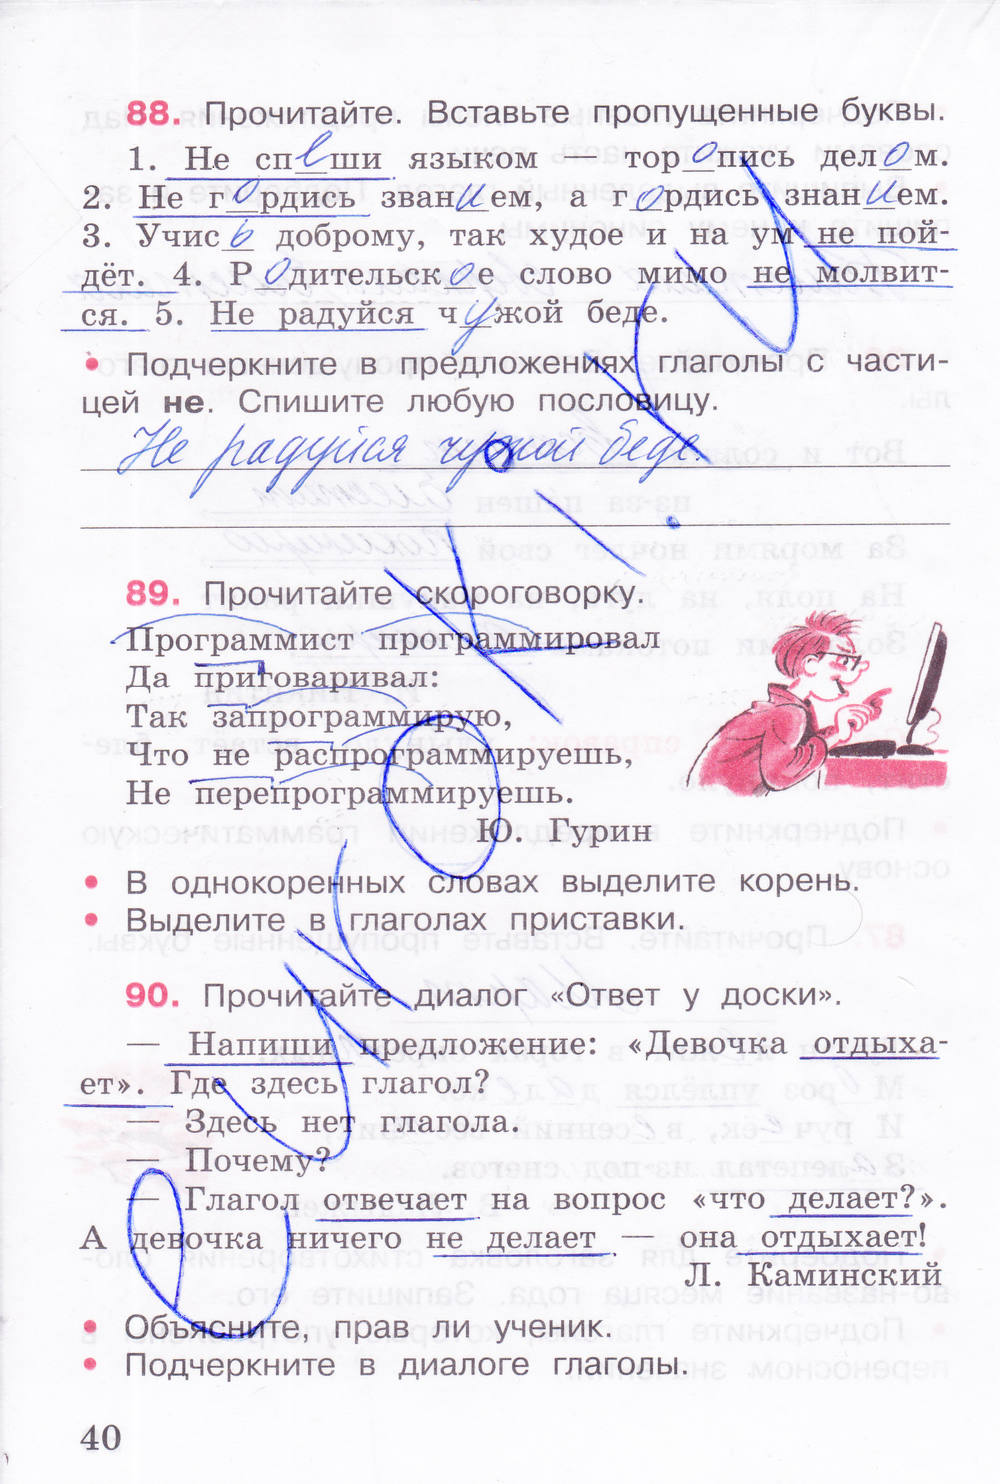 88. Прочитайте. Вставьте пропущенные буквы.
1. Не спеши языком — торопись делом.
2. Не гордись званием, а гордись знанием.
3. Учись доброму, так худое и на ум не пой-
дёт. 4. Родительское слово мимо не молвит-
ся. 5. Не радуйся чужой беде.
• Подчеркните в предложениях глаголы с части-
цей не. Спишите любую пословицу.
Не радуйся чужой беде
89. Прочитайте скороговорку.
Программист программировал
Да приговаривал:
Так запрограммирую,
Что не распрограммируешь,
Не перепрограммируешь.
Ю. Гурин
• В однокоренных словах выделите корень.
• Выделите в глаголах приставки.
90. Прочитайте диалог «Ответ у доски».
— Напиши предложение: «Девочка отдыха-
ет». Где здесь глагол?
— Здесь нет глагола.
— Почему?
— Глагол отвечает на вопрос «что делает?».
А девочка ничего не делает — она отдыхает!
Л. Каминский
• Объясните, прав ли ученик.
• Подчеркните в диалоге глаголы.
40